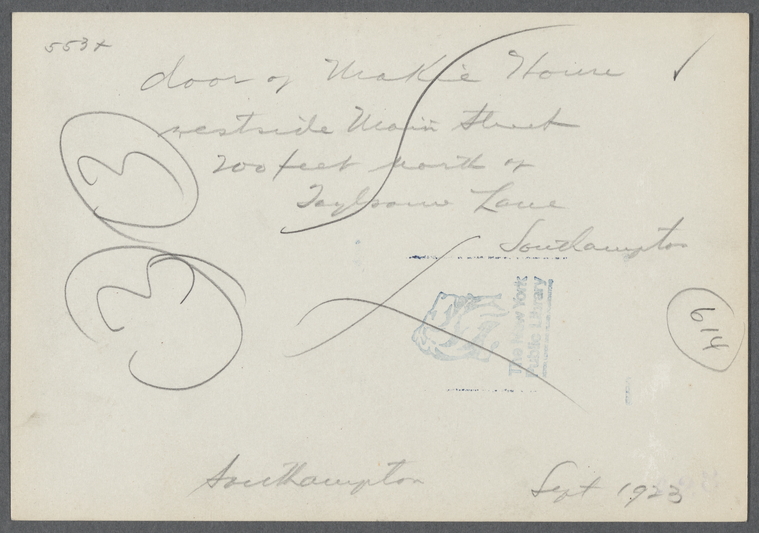 553+
door of Makie House
westside Main Street
200 feet north of
Taylsome Lane
Southampton
3
3
614
The New York
Public Library
Southampton Sept 1923